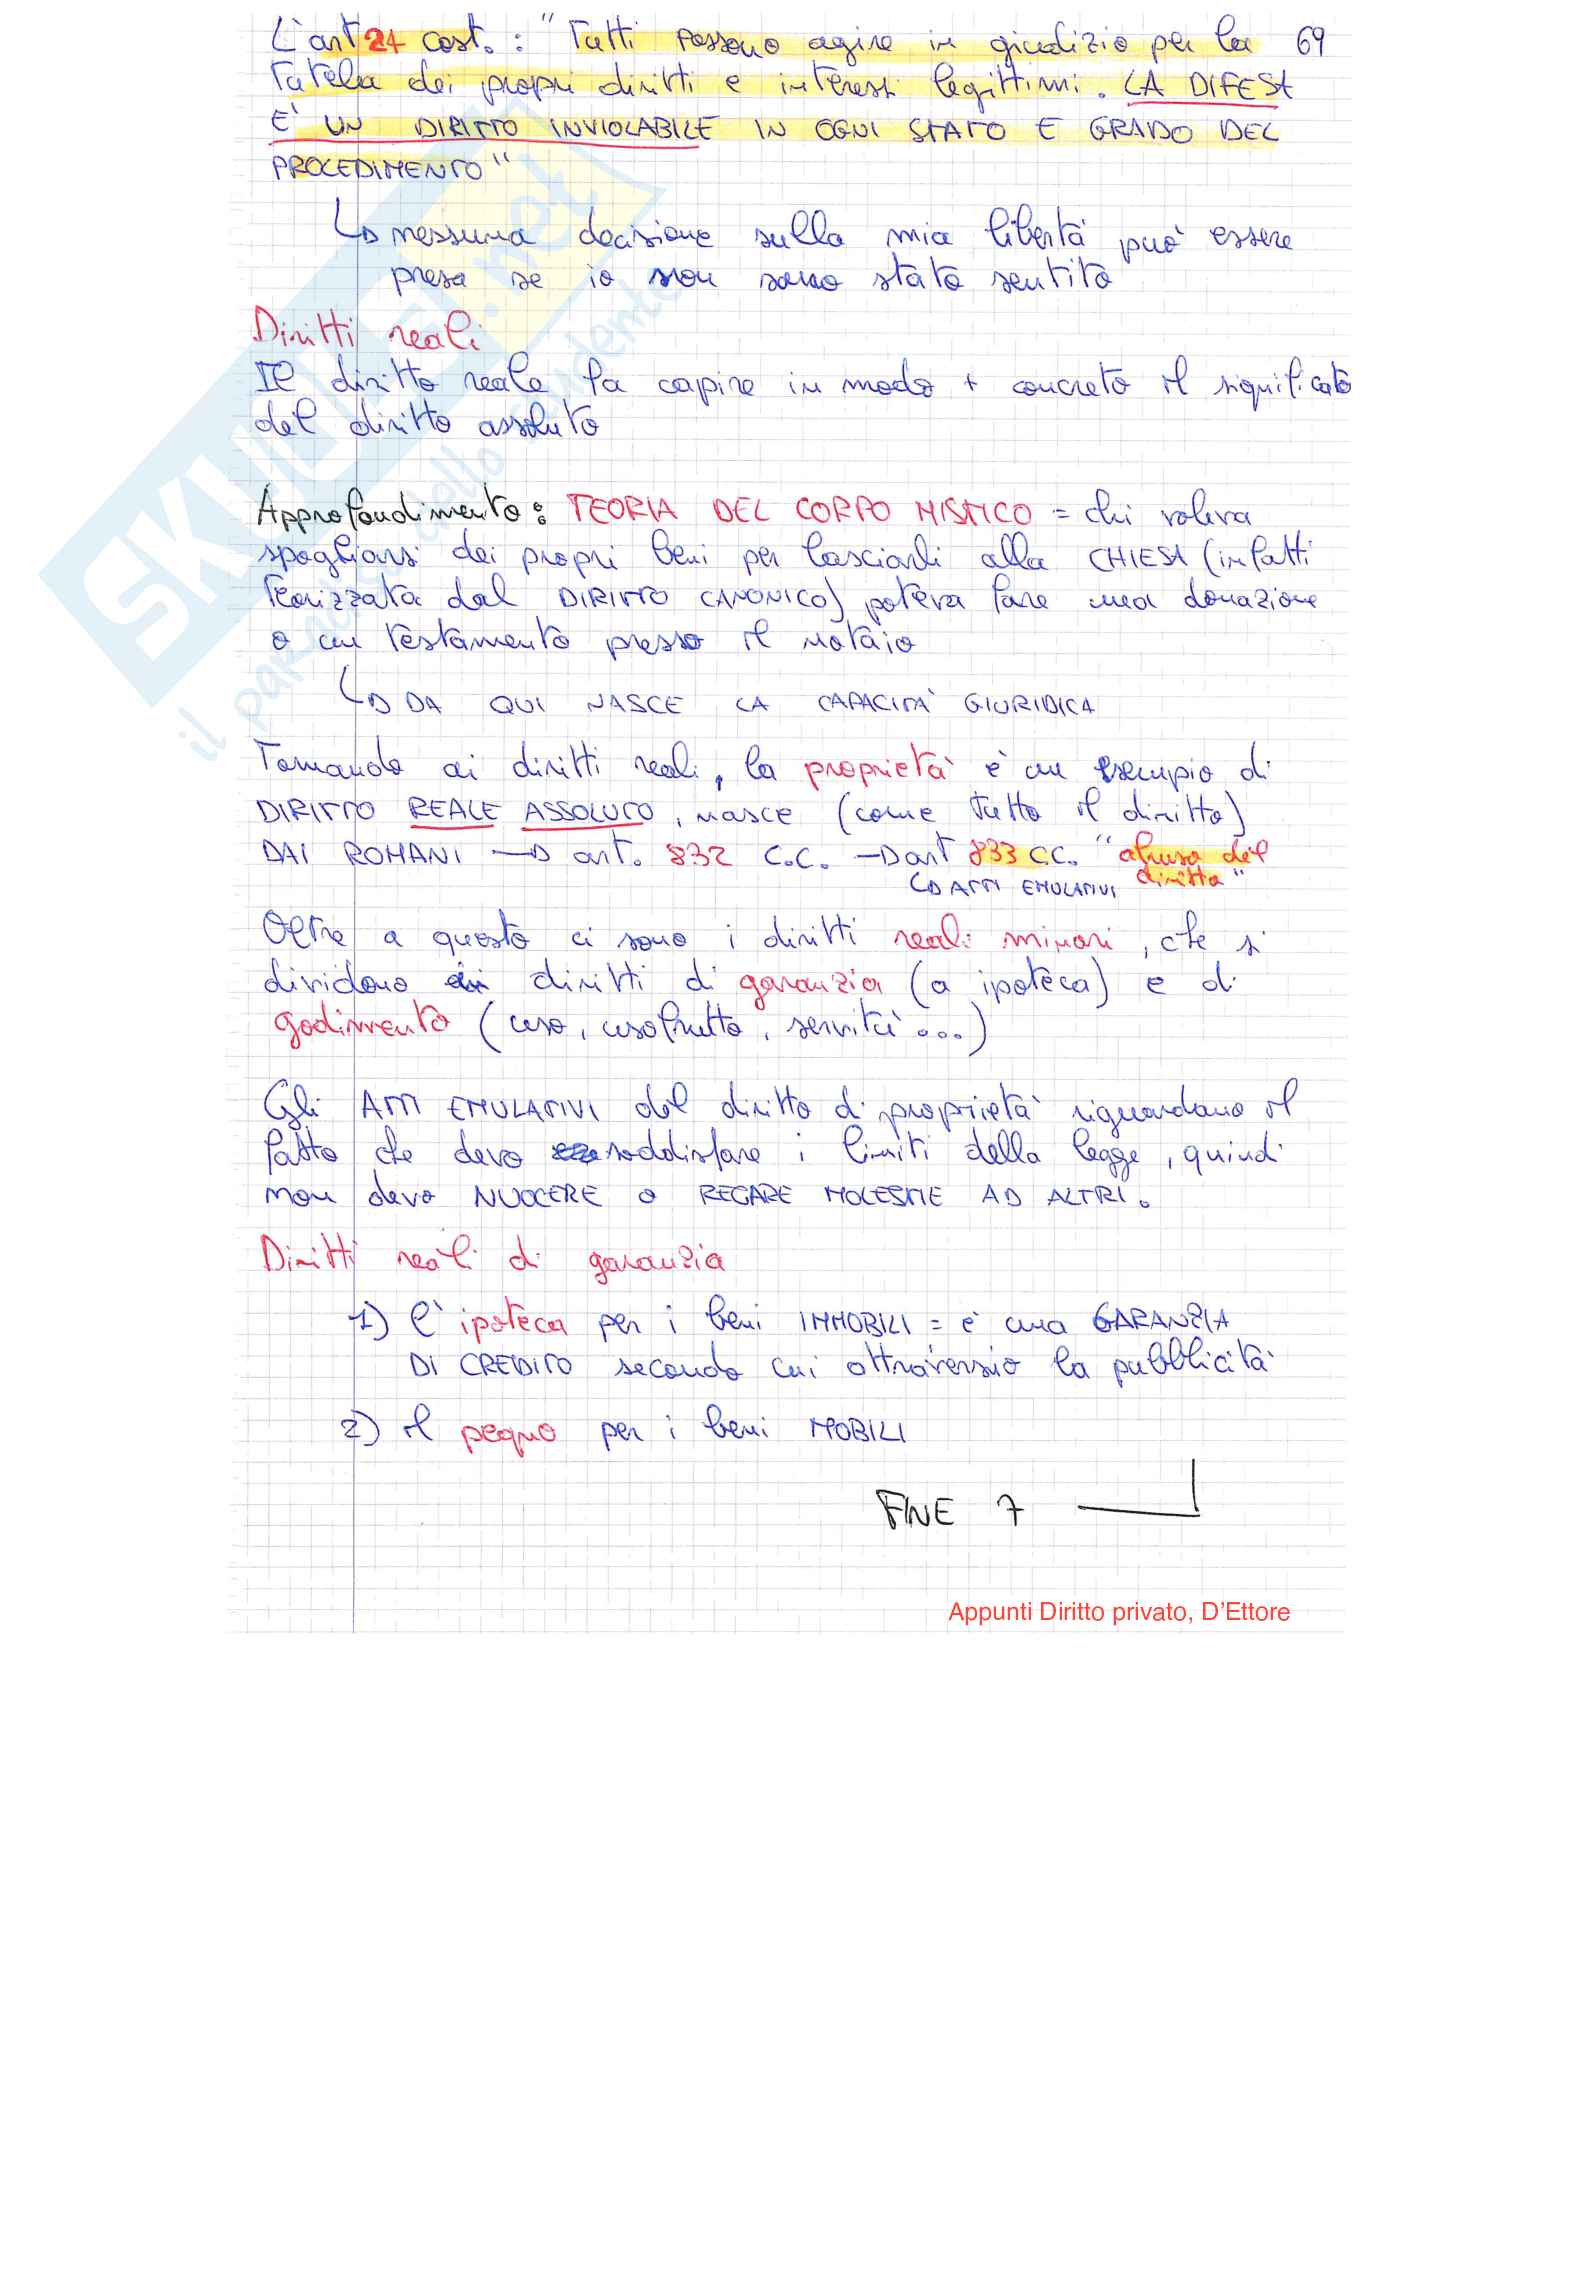 L'art 24 Cost. : "Tutti possono agire in giudizio per la 69
tutela dei propri diritti e interessi legittimi. LA DIFESA
E' UN DIRITTO INVIOLABILE IN OGNI STATO E GRADO DEL
PROCEDIMENTO"
nessuna decisione sulla mia libertà può essere
presa se io non sono stato sentito
Diritti reali
Il diritto reale fa capire in modo + concreto il significato
del diritto assoluto
Approfondimento: TEORIA DEL CORPO MISTICO = chi voleva
spogliarsi dei propri beni per lasciarli alla CHIESA (infatti
teorizzata dal DIRITTO CANONICO) poteva fare una donazione
o un testamento presso il notaio
DA QUI NASCE LA CAPACITÀ GIURIDICA
Tornando ai diritti reali, la proprietà è un esempio di
DIRITTO REALE ASSOLUTO, nasce (come tutto il diritto)
DAI ROMANI → art. 832 C.C. → art 833 C.C. "abuso del
diritto"
ATTI EMULATIVI
Oltre a questo ci sono i diritti reali minori, che si
dividono in diritti di garanzia (a ipoteca) e di
godimento (uso, usofrutto, servitù...)
Gli ATTI EMULATIVI del diritto di proprietà riguardano il
fatto che devo soddisfare i limiti della legge, quindi
non devo NUOCERE o RECARE MOLESTIE AD ALTRI.
Diritti reali di garanzia
1) l'ipoteca per i beni IMMOBILI = è una GARANZIA
DI CREDITO secondo cui attraverso la pubblicità
2) il pegno per i beni MOBILI
FINE 7
Appunti Diritto privato, D'Ettore
SKUOLA.net
il paradiso dello studente